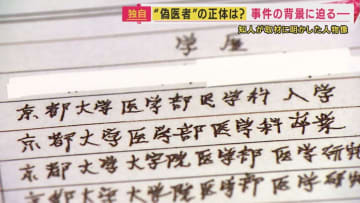 独自 “偽医者”の正体は? 事件の背景に迫る―
知人が取材に明かした人物像
学歴
京都大学医学部医学科 入学
京都大学医学部医学科 卒業
京都大学大学院医学部医学研
京都大学大学院医学部医学研